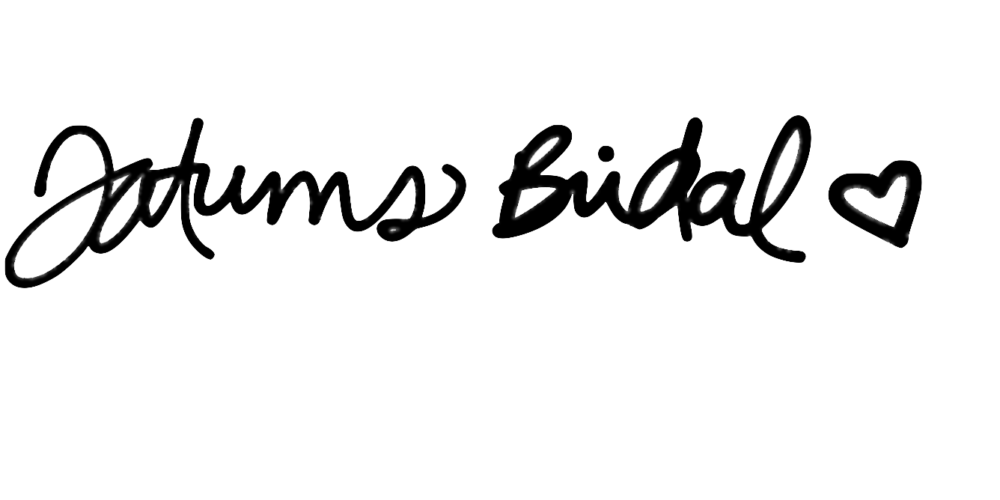 Tatums Bridal ♡